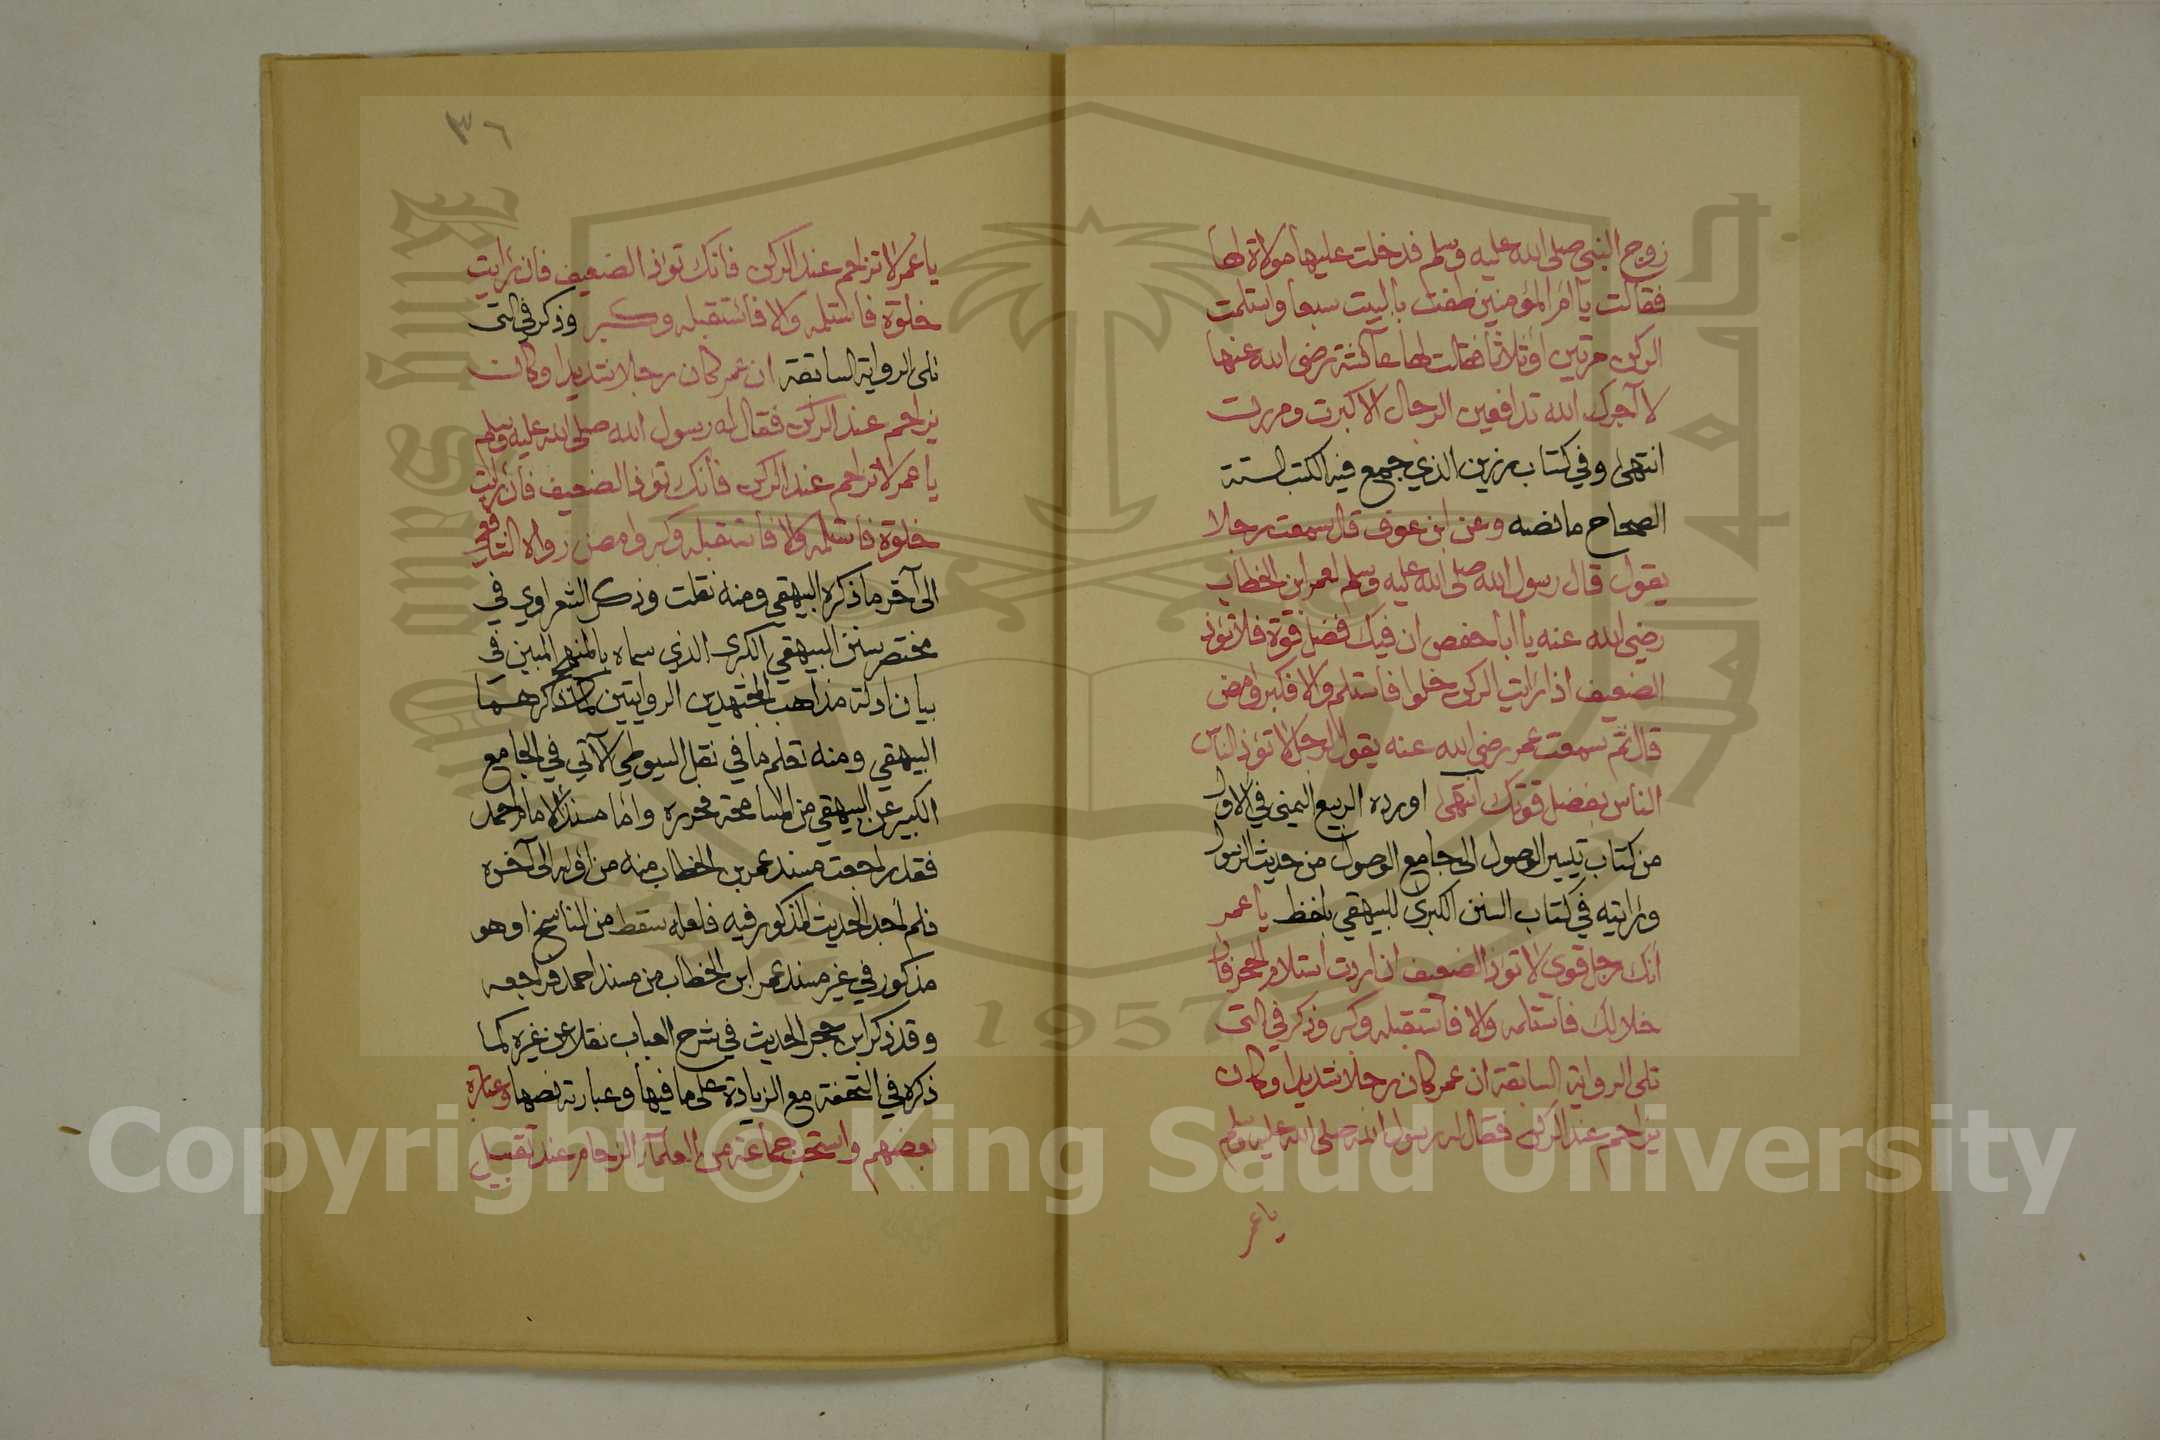 زوج النبي صلى الله عليه وسلم فدخلت عليها مولاة لها
فقالت يا أم المؤمنين طفت بالبيت سبعا واستلمت
الركن مرتين أو ثلاثا فقالت لها عآئشة رضي الله عنها
لا آجرك الله تدافعين الرجال الا كبرت ومررت
انتهى وفي كتاب رزين الذي جمع فيه الكتب الستة
الصحاح ما نصه وعن ابن عوف قال سمعت رجلا
يقول قال رسول الله صلى الله عليه وسلم لعمر ابن الخطاب
رضي الله عنه يا أبا حفص ان فيك فضل قوة فلا تؤذ
الضعيف اذا رايت الركن خلوا فاستلم والا فكبر وامض
قال ثم سمعت عمر رضي الله عنه يقول لرجل لا تؤذ الناس
الناس بفضل قوتك انتهى اورده الربيع اليمني في الاول
من كتاب تيسير الوصول الى جامع الوصول من حديث الرسول
ورايته في كتاب السنن الكبرى للبيهقي بلفظ يا عمر
أنك رجل قوي لا تؤذ الضعيف ان اردت استلام الحجر فان
خلا لك فاستلمه والا فاستقبله وكبر وذكر في التى
تلى الرواية السابقة ان عمر كان رجلا شديدا وكان
يزاحم عند الركن فقال له رسول الله صلى الله عليه وسلم
يا عمر
٣٦
يا عمر لا تزاحم عند الركن فانك تؤذ الضعيف فان رايت
خلوة فاستلمه والا فاستقبله وكبر وذكر في التى
تلى الرواية السابقة ان عمر كان رجلا شديدا وكان
يزاحم عند الركن فقال له رسول الله صلى الله عليه وسلم
يا عمر لا تزاحم عند الركن فانك تؤذ الضعيف فان رايت
خلوة فاستلمه والا فاستقبله وكبر وامض رواه الشافعي
الى آخر ما ذكره البيهقي ومنه نقلت وذكر الشعراوي في
مختصر سنن البيهقي الكبرى الذي سماه بالمنهج المبين في
بيان ادلة مذاهب المجتهدين الروايتين كما ذكرهما
البيهقي ومنه تعلم ما في نقل السيوطي الآتي في الجامع
الكبير عن البيهقي من المسامحة فحرره واما مسند الامام احمد
فقد راجعت مسند عمر بن الخطاب منه من اوله الى آخره
فلم اجد الحديث المذكور فيه فلعله سقط من الناسخ او هو
مذكور في غير مسند عمر ابن الخطاب من مسند احمد فراجعه
وقد ذكر ابن حجر الحديث في شرح العباب نقلا عن غيره كما
ذكره في التحفة مع الزيادة على ما فيها وعبارته نصها وعبارة
بعضهم واستحب جماعة من العلمآء الزحام عند تقبيل
جامعة الملك سعود
King Saud University
1957
Copyright © King Saud University